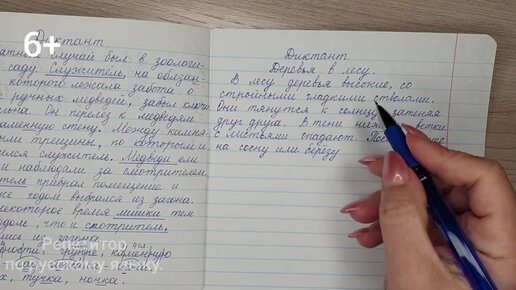 6+
Диктант.
случай был в зоологи-
саду. Служитель, на обязан-
которого лежала забота о
ручных медведей, забыл ключ
Он перелез к медведям
каменную стену. Между камня-
ми трещины, по которым и
лся служитель. Медведи ем
и наблюдали за смотрителем.
тель прибрал помещение и
же ходом выбрался из загона.
некоторое время мишки тем
ходом, что и смотритель,
лись из загона.
каменную
тучка, ночка.
Диктант.
Деревья в лесу.
В лесу деревья высокие, со
стройными гладкими стволами.
Они тянутся к солнцу, затеняя
друг друга. В тени ветки
с листьями опадают.
на сосну или берёзу
Репетитор
по русскому языку.